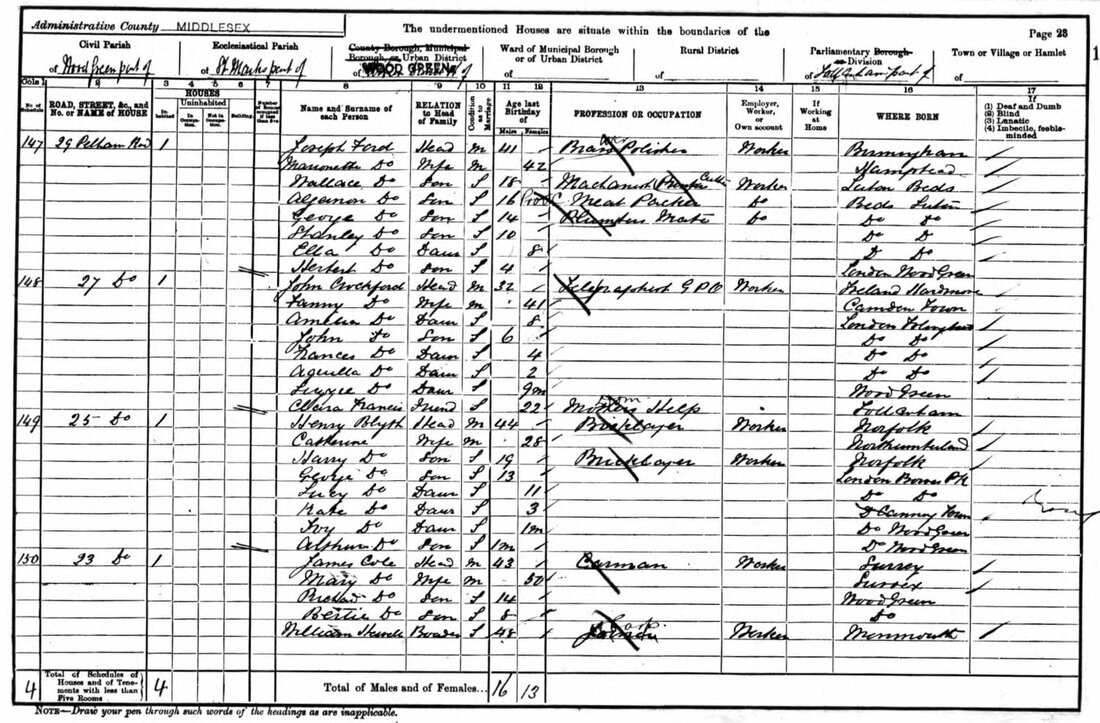 Administrative County MIDDLESEX
The undermentioned Houses are situate within the boundaries of the
Page 23
Civil Parish
Ecclesiastical Parish
County Borough, Municipal Borough, or Urban District
Ward of Municipal Borough or of Urban District
Rural District
Parliamentary Borough or Division
Town or Village or Hamlet
of Wood Green part of
of St Marks part of
of WOOD GREEN
of
of
of Tottenham part of
of
Cols 1 2 3 4 5 6 7 8 9 10 11 12 13 14 15 16 17
No. of Schedule
ROAD, STREET, &c., and No. or NAME of HOUSE
HOUSES
Inhabited
Uninhabited
In Occupation.
Not in Occupation.
Building
Number of Rooms occupied if less than five
Name and Surname of each Person
RELATION to Head of Family
Condition as to Marriage
Age last Birthday of
Males
Females
PROFESSION OR OCCUPATION
Employer, Worker, or Own account
If Working at Home
WHERE BORN
If
(1) Deaf and Dumb
(2) Blind
(3) Lunatic
(4) Imbecile, feeble-minded
147 29 Pelham Rd 1 Joseph Ford Head M 41 Brass Polisher Worker Birmingham
Do Wife M 42 Hampstead
Wallace Do Son S 18 Worker Luton Beds
Algernon Do Son S 16 Meat Packer Do Beds Luton
George Do Son S 14 Plumbers Mate Do Do Do
Stanley Do Son S 10 Do D
Ella Do Daur S 8 D Do
Herbert Do Son S 4 London Wood Green
148 27 Do 1 John Crockford Head M 32 Telegraphist G.P.O Worker Ireland
Fanny Do Wife M 41 Camden Town
Amelia Do Daur S 8 London
John Do Son S 6 Do Do
Frances Do Daur S 4 Do Do
Aquilla Do Daur S 2 Do Do
Do Daur S 9m Wood Green
Clara Francis Friend S 22 Mothers Help Tottenham
149 25 Do 1 Henry Blyth Head M 44 Bricklayer Worker Norfolk
Catherine Wife M 28 Northumberland
Harry Do Son S 19 Bricklayer Worker Norfolk
George Do Son S 13 London Bowes Pk
Lucy Do Daur S 11 Do Do
Kate Do Daur S 3 D Canning Town
Ivy Do Daur S 1m Do Wood Green
Arthur Do Son S 1m Do Wood Green
150 23 Do 1 James Cole Head M 43 Carman Worker Surrey
Mary Do Wife M 50 Sussex
Richard Do Son S 14 Wood Green
Bertie Do Son S 8 Do
William Boarder S 48 Worker Monmouth
4 Total of Schedules of Houses and of Tenements with less than Five Rooms 4 Total of Males and of Females... 16 13
NOTE—Draw your pen through such words of the headings as are inapplicable.